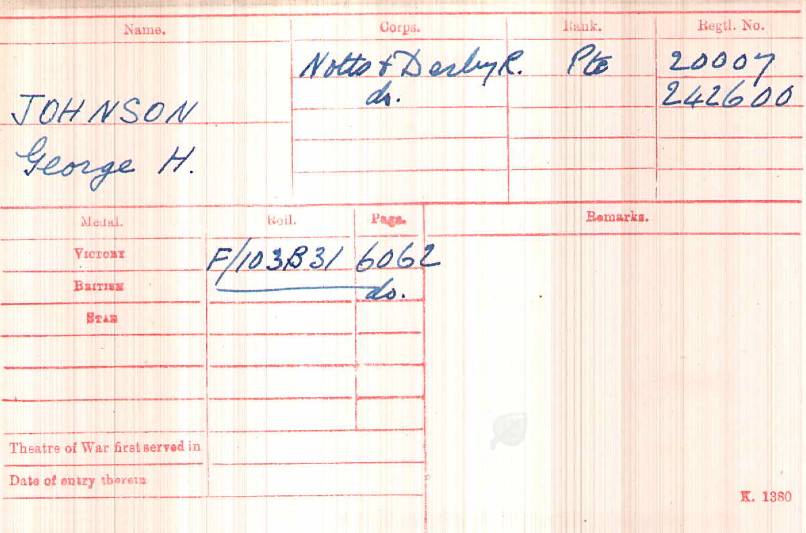 Name. Corps. Rank. Regtl. No.
Notts & Derby R. Pte 20007
JOHNSON do. 242600
George H.
Medal. Roll. Page. Remarks.
VICTORY F/103B31 6062
BRITISH do.
STAR
Theatre of War first served in
Date of entry therein
K. 1380